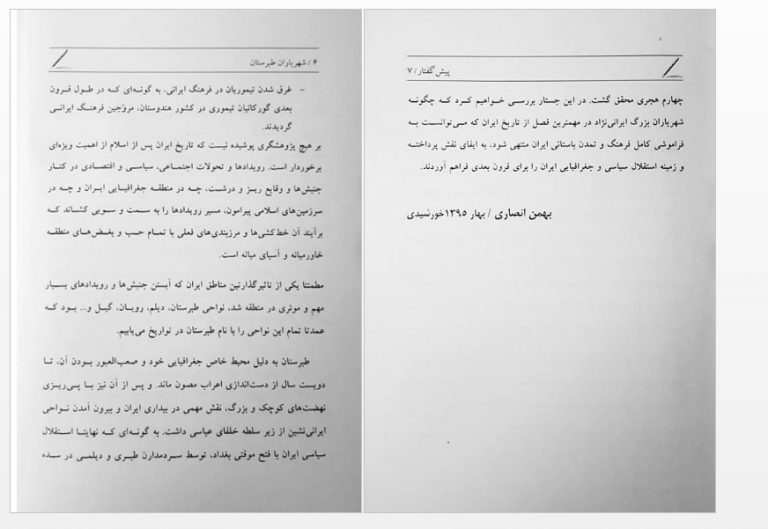 ۶ / شهریاران طبرستان
- غرق شدن تیموریان در فرهنگ ایرانی، به گونه‌ای که در طول قرون
بعدی گورکانیان تیموری در کشور هندوستان، مروّجین فرهنگ ایرانی
گردیدند.
بر هیچ پژوهشگری پوشیده نیست که تاریخ ایران پس از اسلام از اهمیت ویژه‌ای
برخوردار است. رویدادها و تحولات اجتماعی، سیاسی و اقتصادی در کنار
جنبش‌ها و وقایع ریز و درشت، چه در منطقه جغرافیایی ایران و چه در
سرزمین‌های اسلامی پیرامون، مسیر رویدادها را به سمت و سویی کشاند که
برآیند آن خط‌کشی‌ها و مرزبندی‌های فعلی با تمام حب و بغض‌های منطقه
خاورمیانه و آسیای میانه است.
مطمئنا یکی از تاثیرگذارترین مناطق ایران که آبستن جنبش‌ها و رویدادهای بسیار
مهم و موثری در منطقه شد، نواحی طبرستان، دیلم، رویان، گیل و... بود که
عمدتا تمام این نواحی را با نام طبرستان در تواریخ می‌یابیم.
طبرستان به دلیل محیط خاص جغرافیایی خود و صعب‌العبور بودن آن، تا
دویست سال از دست‌اندازی اعراب مصون ماند. و پس از آن نیز با پی‌ریزی
نهضت‌های کوچک و بزرگ، نقش مهمی در بیداری ایران و بیرون آمدن نواحی
ایرانی‌نشین از زیر سلطه خلفای عباسی داشت. به گونه‌ای که نهایتا استقلال
سیاسی ایران با فتح موقتی بغداد، توسط سردمداران طبری و دیلمی در سده
پیش گفتار / ۷
چهارم هجری محقق گشت. در این جستار بررسی خواهیم کرد که چگونه
شهریاران بزرگ ایرانی‌نژاد در مهمترین فصل از تاریخ ایران که می‌توانست به
فراموشی کامل فرهنگ و تمدن باستانی ایران منتهی شود، به ایفای نقش پرداخته
و زمینه استقلال سیاسی و جغرافیایی ایران را برای قرون بعدی فراهم آوردند.
بهمن انصاری / بهار ۱۳۹۵ خورشیدی